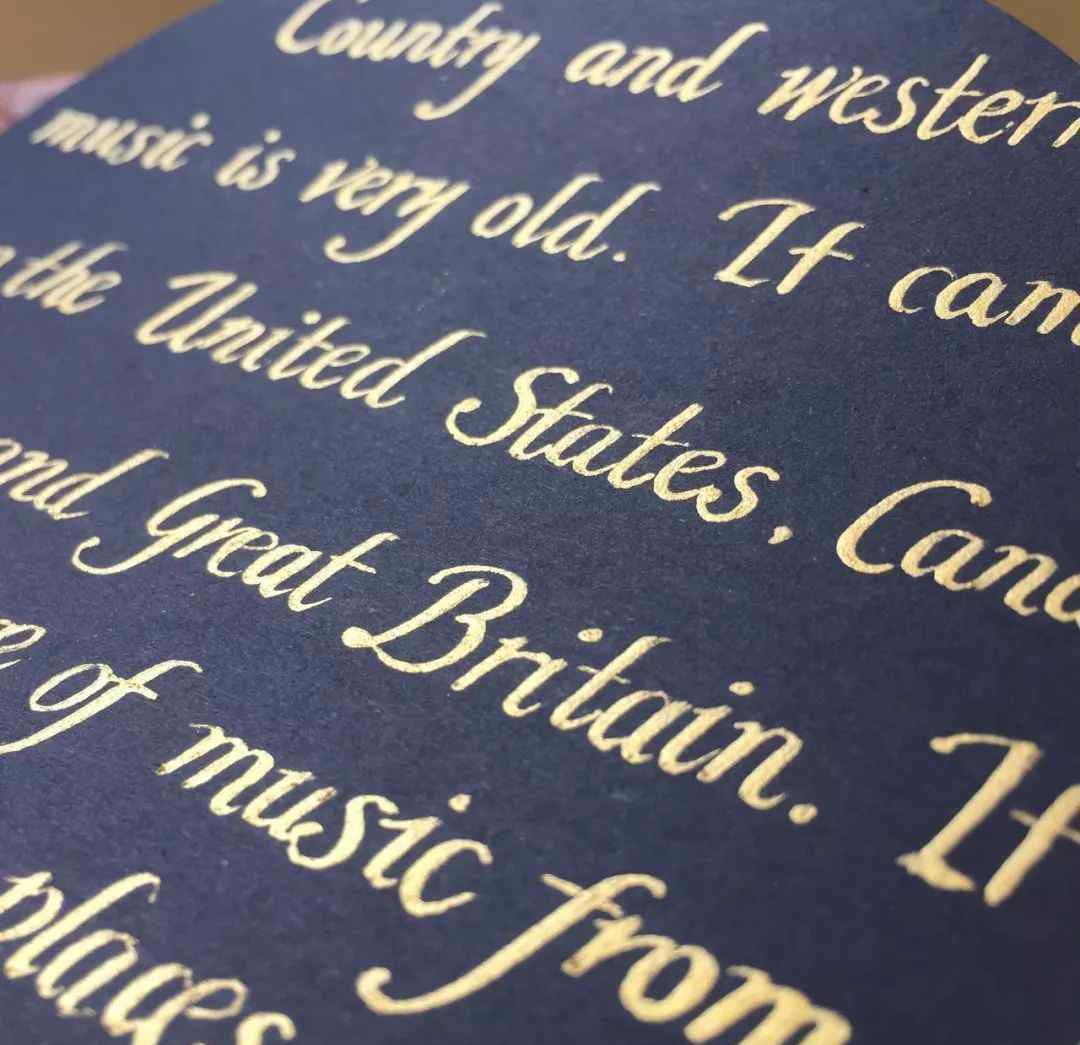 Country and western
music is very old. It cam
the United States, Cana
and Great Britain. It
of music from
places